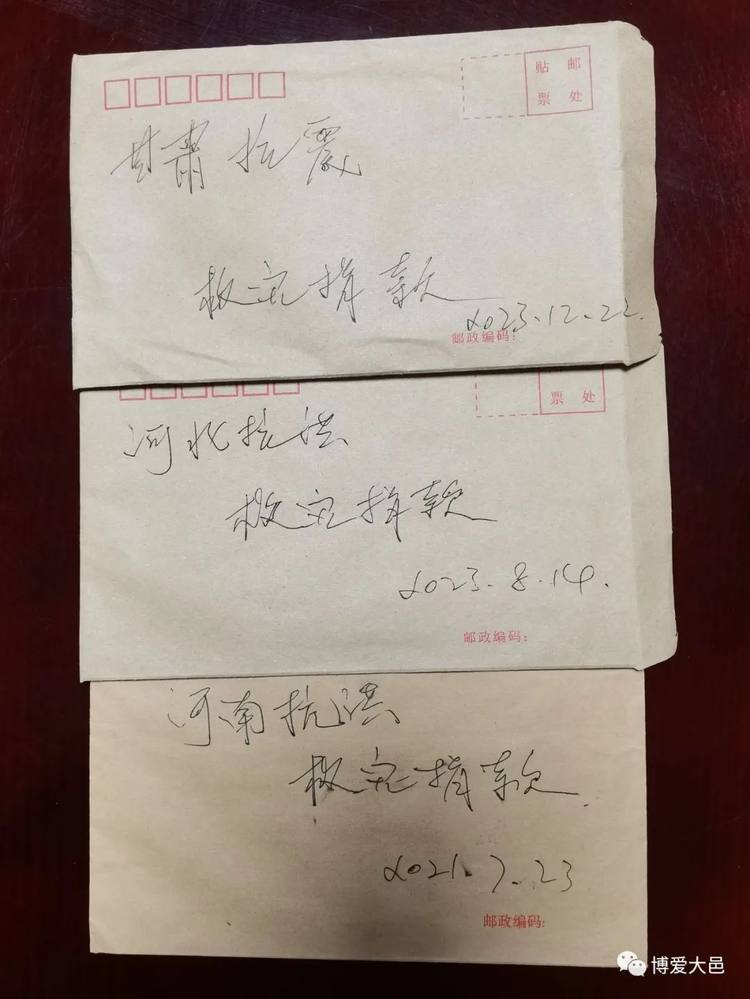 贴 邮
票 处
甘肃抗震
救灾捐款
2023.12.22.
邮政编码:
票 处
河北抗洪
救灾捐款
2023.8.14.
邮政编码:
河南抗洪
救灾捐款
2021.7.23
邮政编码:
博爱大邑